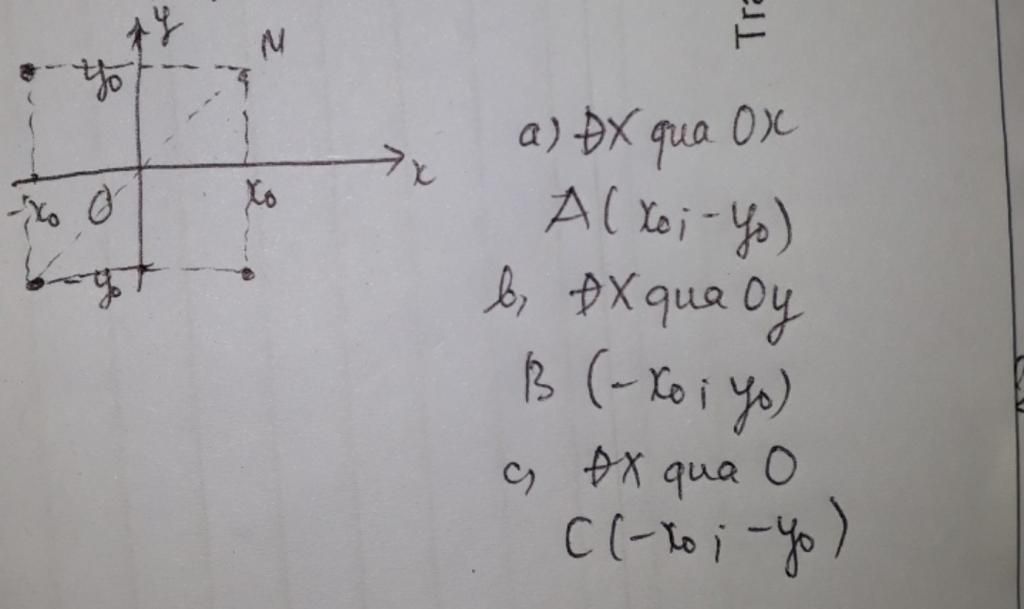 y
M
y₀
x
-x₀
O
x₀
-y₀
Tra
a) ĐX qua Ox
A( x₀; -y₀)
b, ĐX qua Oy
B (-x₀; y₀)
c, ĐX qua O
C(-x₀; -y₀)